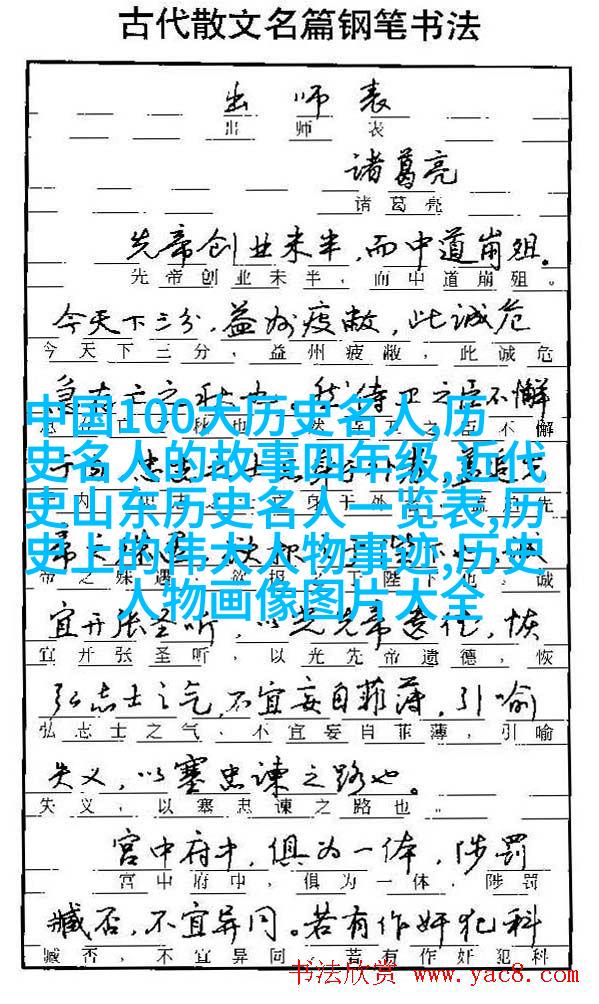 古代散文名篇钢笔书法
出师表
出师表
诸葛亮
诸葛亮
先帝创业未半,而中道崩殂。
先帝创业未半,而中道崩殂。
今天下三分,益州疲敝,此诚危
今天下三分,益州疲敝,此诚危
侍卫之臣不懈
不懈
中国100大历史名人,历
史名人的故事四年级,近代
史山东历史名人一览表,历
史上的伟大人物事迹,历史
人物画像图片大全
宜开张圣听,以光先帝遗德,恢
宜开张圣听,以光先帝遗德,恢
弘志士之气,不宜妄自菲薄,引喻
弘志士之气,不宜妄自菲薄,引喻
失义,以塞忠谏之路也。
失义,以塞忠谏之路也。
宫中府中,俱为一体,陟罚
宫中府中,俱为一体,陟罚
臧否,不宜异同。若有作奸犯科
臧否,不宜异同。若有作奸犯科
书法欣赏 www.yac8.com